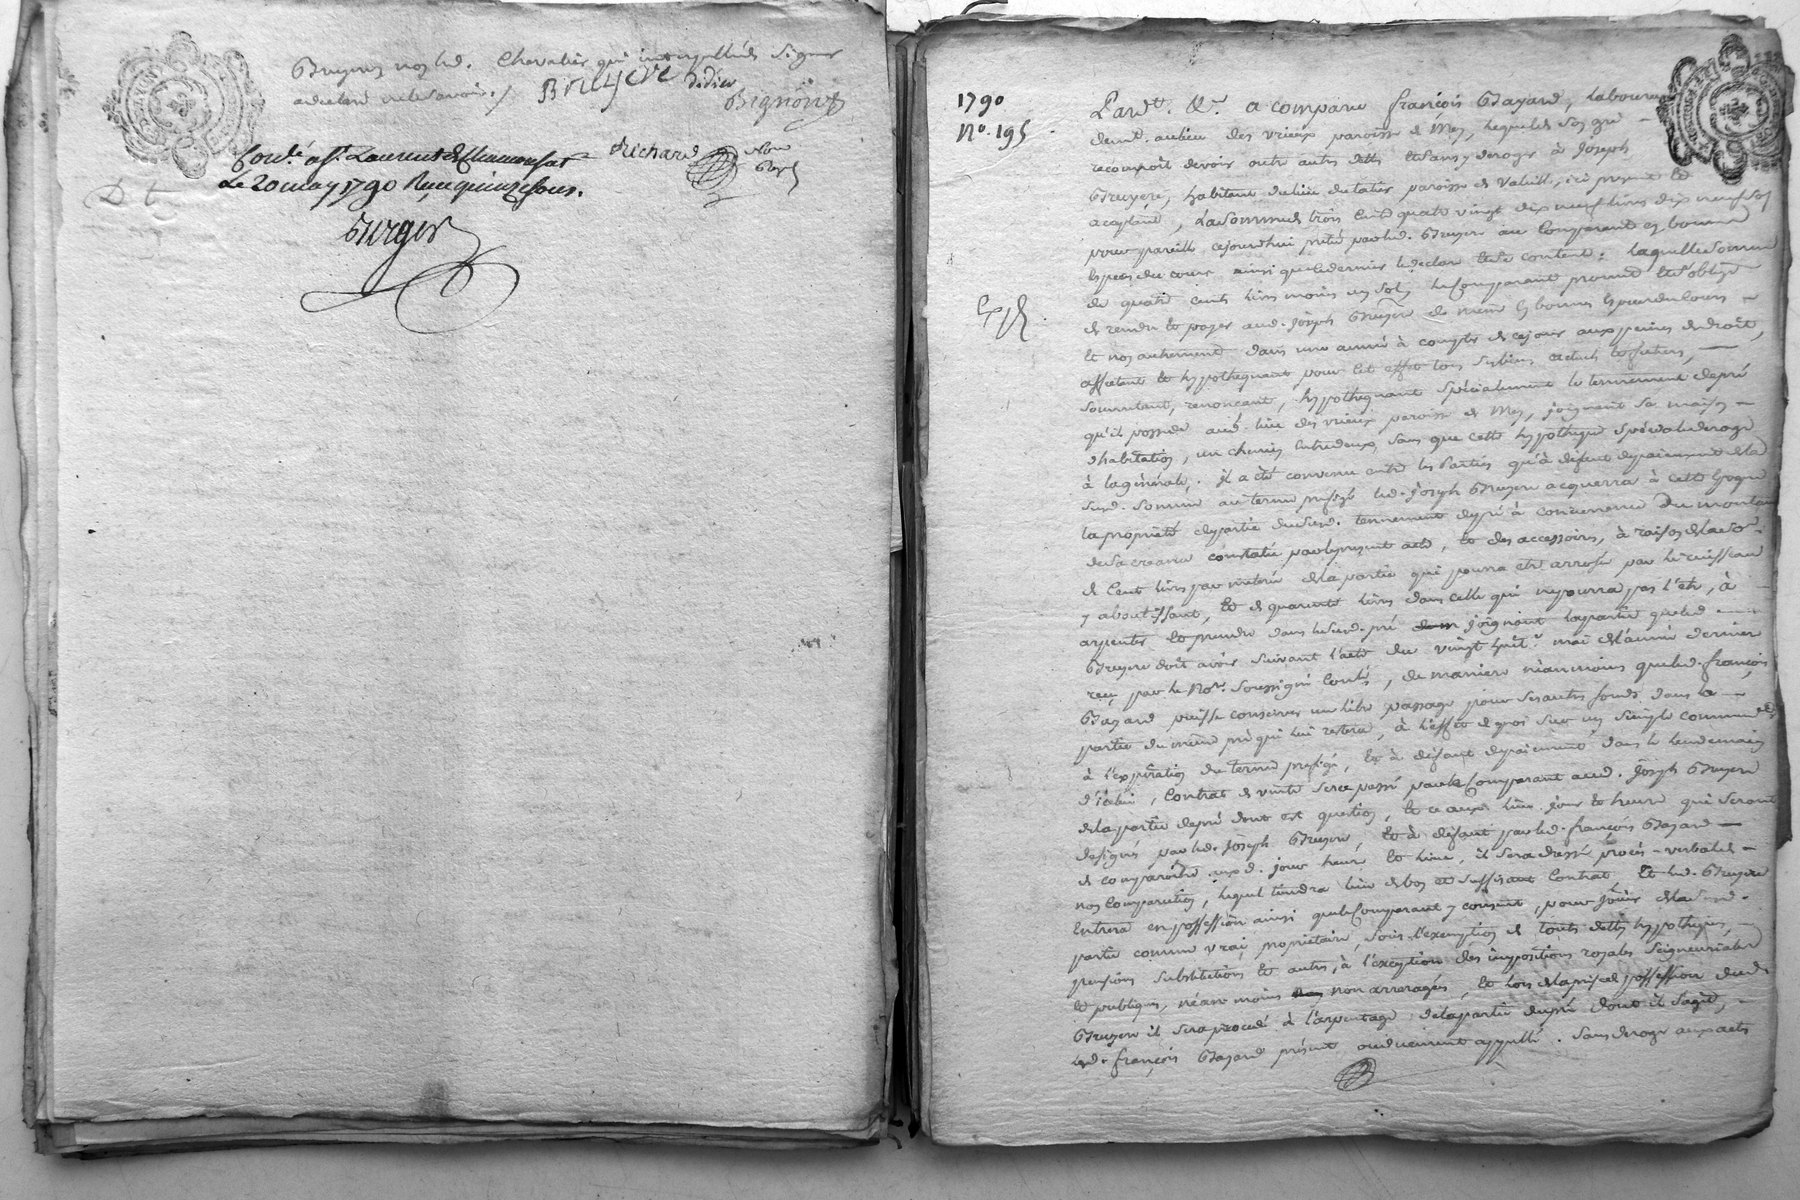 Bruyere non led. Chevalier qui interpellés de signer
a declaré ne le savoir./. BRUYERE didier
Bignon
Conté. a St. Laurent de Chamousset Richard Nore
Le 20 may 1790 Reçu quinze sous. Roy
D t
Burger
1790
No. 195
Exp
Pardt. &c. a comparu françois Bazard, laboureur
demt. au lieu des vrieux paroisse de Mes, lequel de son gré
reconnoit devoir outre autres dettes et sans y deroger à Joseph
Bruyere, habitant du lieu du tatis paroisse de , ici present et
acceptant, la somme de trois cents quatre vingt dix neuf livres dix neuf sols
pour pareille cejourdhui preté par led. Bruyere au Comparant en bonnes
especes du cours ainsi que le dernier le declare et s'en contente: laquelle somme
de quatre cents livres moins un sol, le Comparant promet et s'oblige
de rendre et payer aud. joseph Bruyere de meme en bonnes especes du cours
et non autrement dans une année à compter de ce jour aux peines de droit,
affectant et hypothequant pour cet effet tous ses biens actuels et futurs,
soumettant, renonçant, hypothequant spécialement le tenement de pré
qu'il possede aud. lieu des vrieux paroisse de Mes, joignant sa maison
d'habitation, un chemin entredeux, sans que cette hypotheque spéciale deroge
à la générale. il a été convenu entre les Parties qu'à defaut de paiement de la
susd. somme au terme préfigé led. joseph Bruyere acquerra à cette Epoque
la propriété de partie du susd. tenement de pré à concurrence du montant
de sa creance constatée par le present acte, et des accessoires, à raison de la so
de Cent livres par meterée de la partie qui pourra etre arrosée par le ruisseau
y aboutissant, et de quarante livres dans celle qui ne pourra pas l'etre, à
arpenter et prendre dans le susd. pré joignant la partie que led
Bruyere doit avoir suivant l'acte du vingt huit. mai de l'année derniere
reçu par le Nore. soussigné Conté, de maniere néanmoins que led. françois
Bazard puisse conserver un libre passage pour ses autres fonds dans la
partie du meme pré qui lui restera, à l'effet de quoi sur un simple commandet
à l'expiration du terme prefigé, et à defaut de paiement dans le lendemain
d'icelui, Contrat de vente sera passé par le Comparant aud. Joseph Bruyere
de la partie de pré dont est question, et ce aux lieu jour et heure qui seront
designés par led. Joseph Bruyere, et à defaut par led. françois Bazard
de comparoitre auxd. jour heure et lieu, il sera dressé procès-verbal de
non Comparution, lequel tiendra lieu de bon et suffisant Contrat et led. Bruyere
entrera en possession ainsi que le Comparant y consent, pour jouir de lad
partie comme vrai propriétaire, sous l'exemption de toutes dettes hypotheques,
pensions substitutions et autres, à l'exception des impositions royales seigneuriales
et publiques, néanmoins non arreragées, et lors de la prise de possession dud.
Bruyere il sera procedé à l'arpentage de la partie du pré dont il s'agit,
led. françois Bazard présent ou duement appellé. sans deroger aux acts